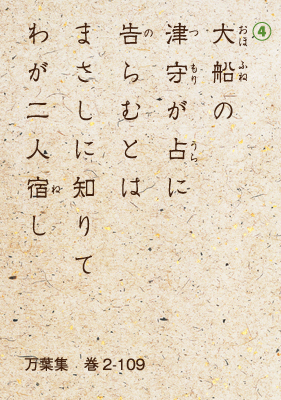 ④
大船の
津守が占に
告らむとは
まさしに知りて
わが二人宿し
おほ ふね
つ もり
うら
の
ね
万葉集 巻2-109